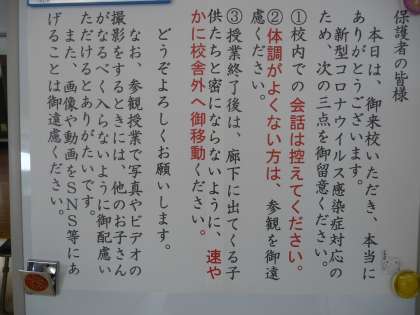 保護者の皆様
本日は、御来校いただき、本当に
ありがとうございます。
新型コロナウイルス感染症対応の
ため、次の三点を御留意ください。
①校内での会話は控えてください。
②体調がよくない方は、参観を御遠
慮ください。
③授業終了後は、廊下に出てくる子
供たちと密にならないように、速や
かに校舎外へ御移動ください。
どうぞよろしくお願いします。
なお、参観授業で写真やビデオの
撮影をするときには、他のお子さん
がなるべく入らないように御配慮い
ただけるとありがたいです。
また、画像や動画をSNS等にあ
げることは御遠慮ください。